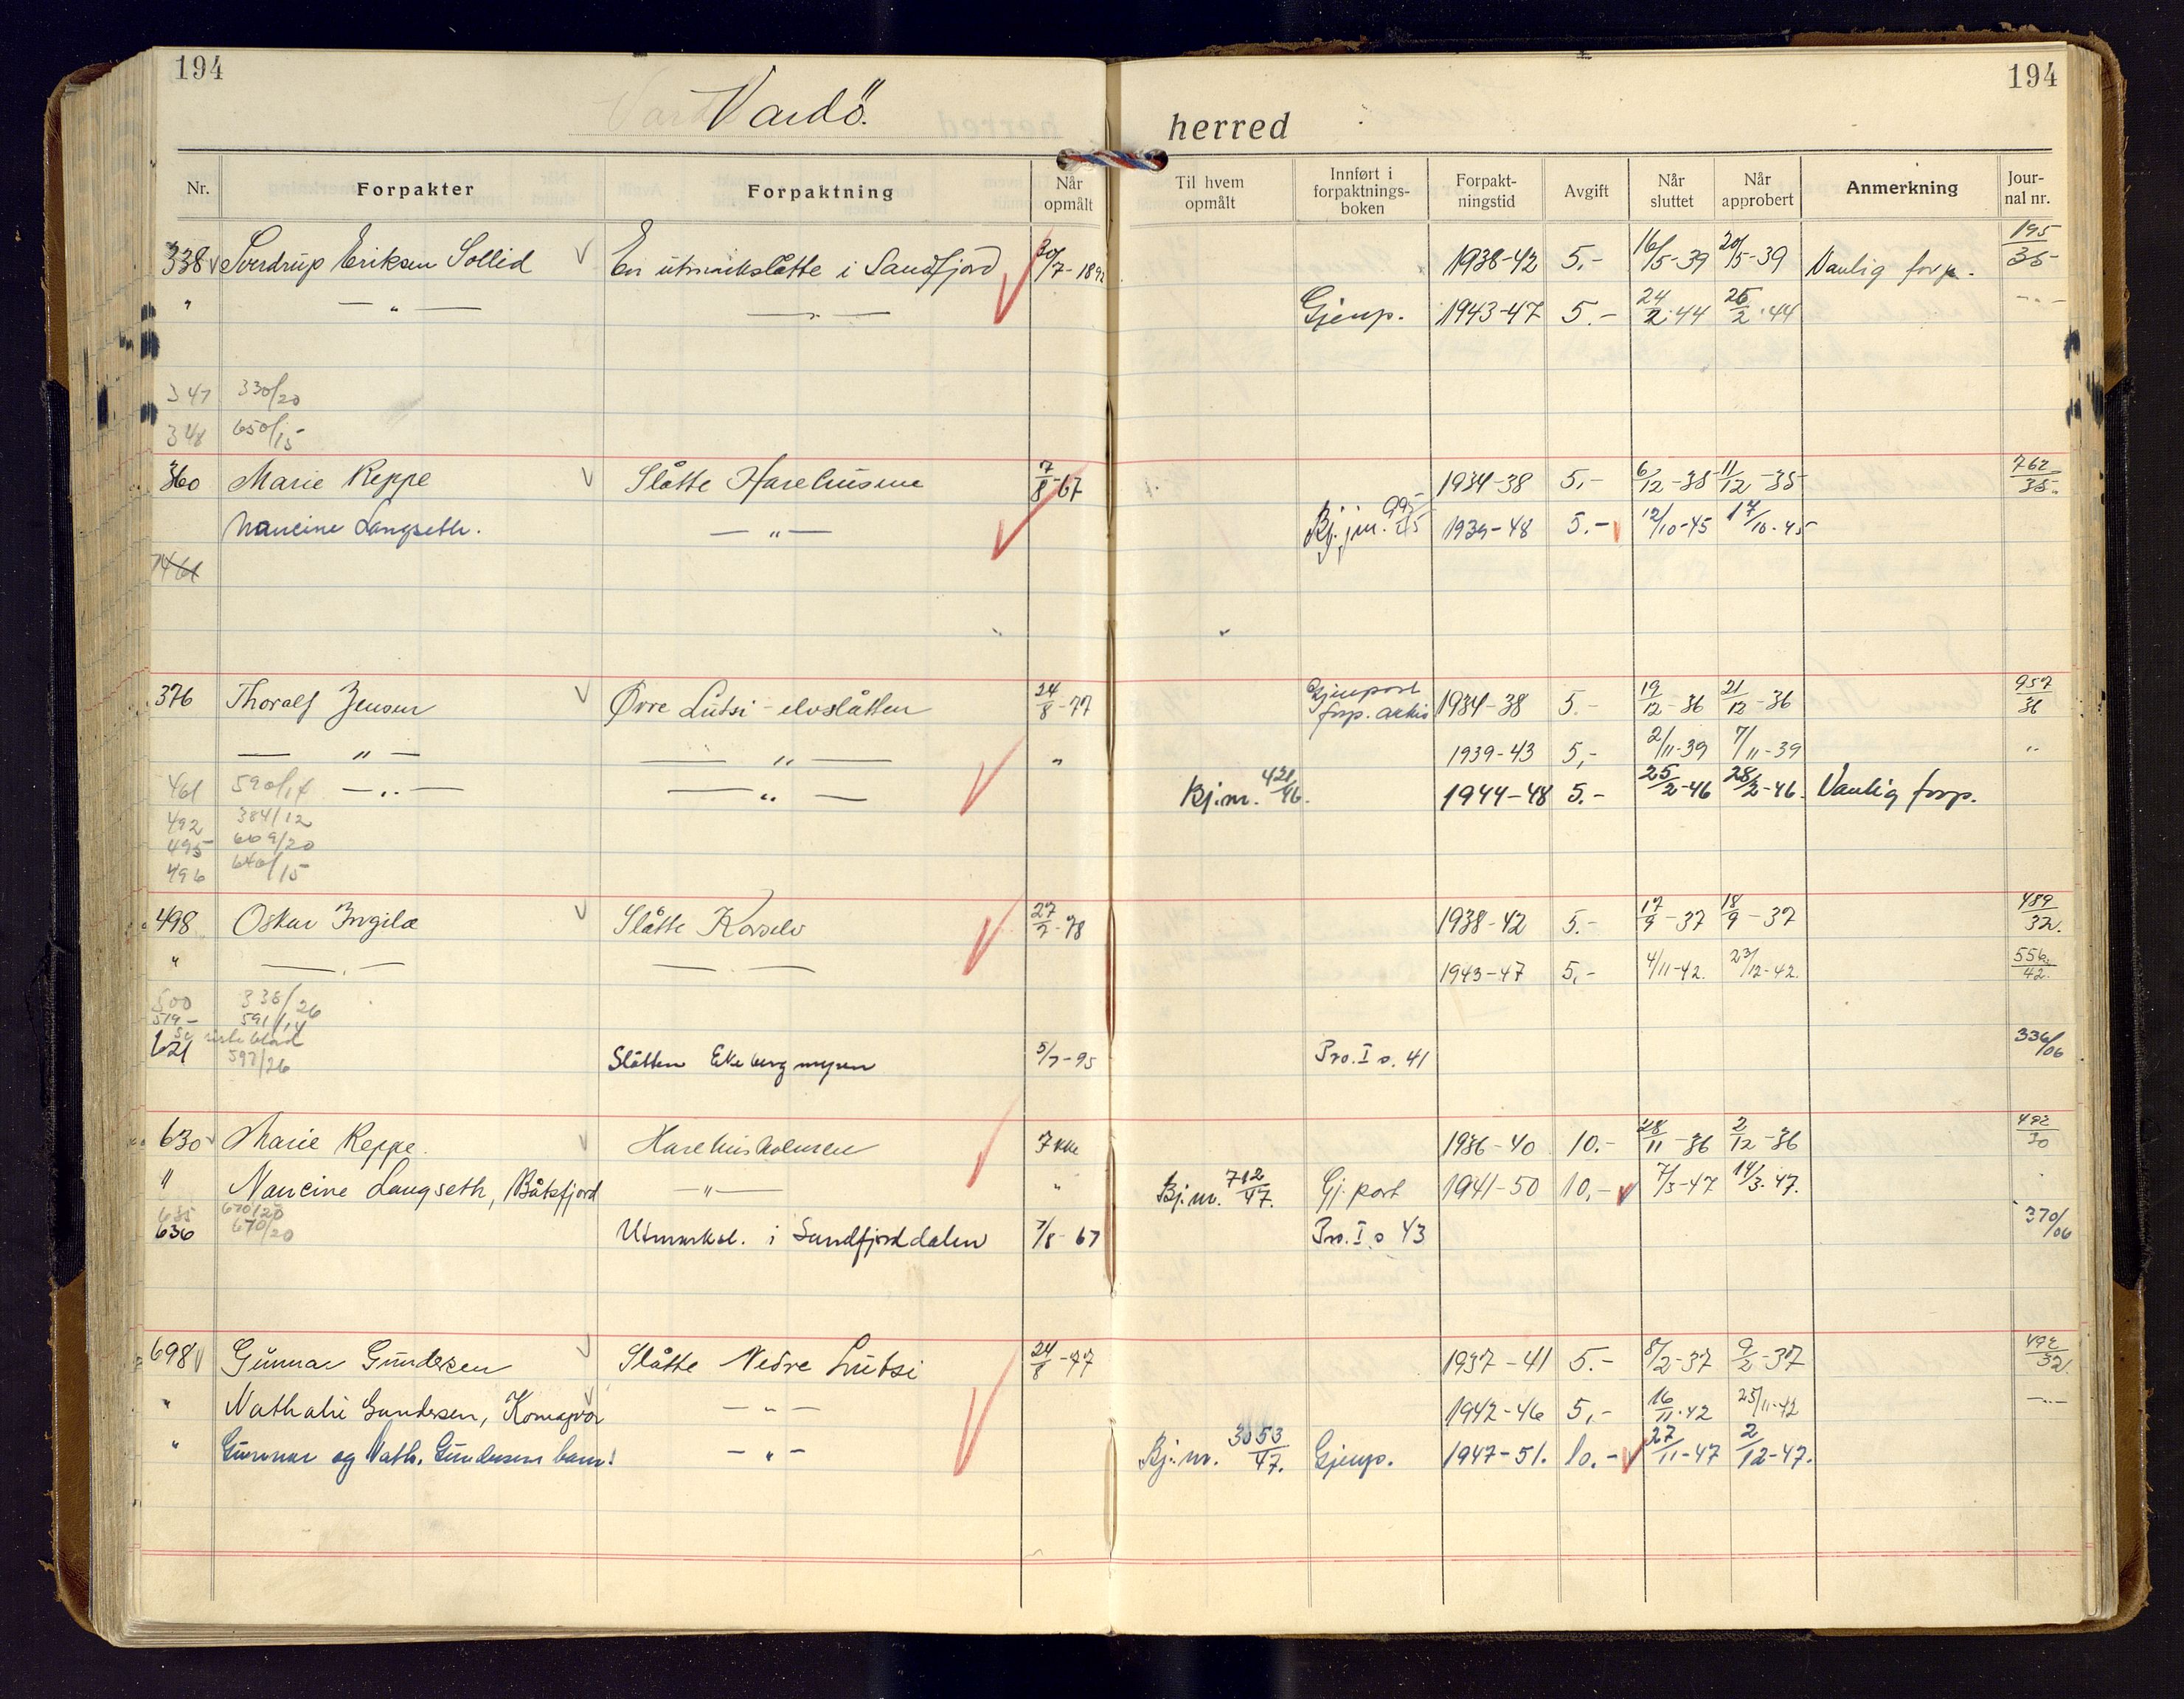 194
194
Vardö. herred
Nr. Forpakter Forpaktning Når opmålt Til hvem opmålt Innført i forpaktnings-boken Forpakt-ningstid Avgift Når sluttet Når approbert Anmerkning Jour-nal nr.
338 Sverdrup Eriksen Sollid En utmarkslåtte i Sandfjord 30/7-1892 1938-42 5,- 16/5-39 20/5-39 Vanlig forp. 195/35
" — " — — " — Gjenp. 1943-47 5.- 24/2-44 26/2-44 — " —
347 330/20
348 650/15
360 Marie Reppe Slåtte Harehusene 7/8-67 1934-38 5,- 6/12-35 11/12-35 762/35
Nancine Langseth. — " — Bj. jnr. 995/45 1939-48 5.- 12/10-45 17/10-45
461
376 Thoralf Jensen Øvre Lutsi-elvslåtten 24/8-77 Gjenpart forp. arkiv 1934-38 5.- 19/12-36 21/12-36 957/36
— " — — " — " 1939-43 5,- 2/11-39 7/11-39 "
461 590/14 — " — — " — Bj.nr. 421/46. 1944-48 5.- 25/2-46 28/2-46. Vanlig forp.
492 384/12
495 609/20
496 640/15
498 Oskar Ingilæ Slåtte Korselv 27/7-78 1938-42 5.- 17/9-37 18/9-37 489/32.
" — " — — " — 1943-47 5,- 4/11-42. 23/12-42. 556/42.
500 338/26
519- 591/14
Se siste blad
621 597/26 Slåtten Ekebergmyren 5/7-95 Pro. I s. 41 336/06
630 Marie Reppe. Harehusholmen 7 1936-40 10.- 28/11-36 2/12-36 492/30
" Nancine Langseth, Båtsfjord — " — " Bj.nr. 712/47. Gj. part 1941-50 10,- 7/3-47 14/3-47.
635 670/20
636 670/20 Utmarksl. i Sandfjorddalen 7/8-67 Pro. I s 43 370/06
698 Gunnar Gundersen Slåtte Nedre Lutsi 24/8-77 1937-41 5.- 8/2-37 9/2-37 492/32.
" Nathalie Gundersen, Komagvær — " — 1942-46 5,- 16/11-42 25/11-42 — " —
" Gunnar og Nath. Gundersens barn! — " — Bj.nr. 3053/47. Gjenp. 1947-51. 10.- 27/11-47 2/12-47.